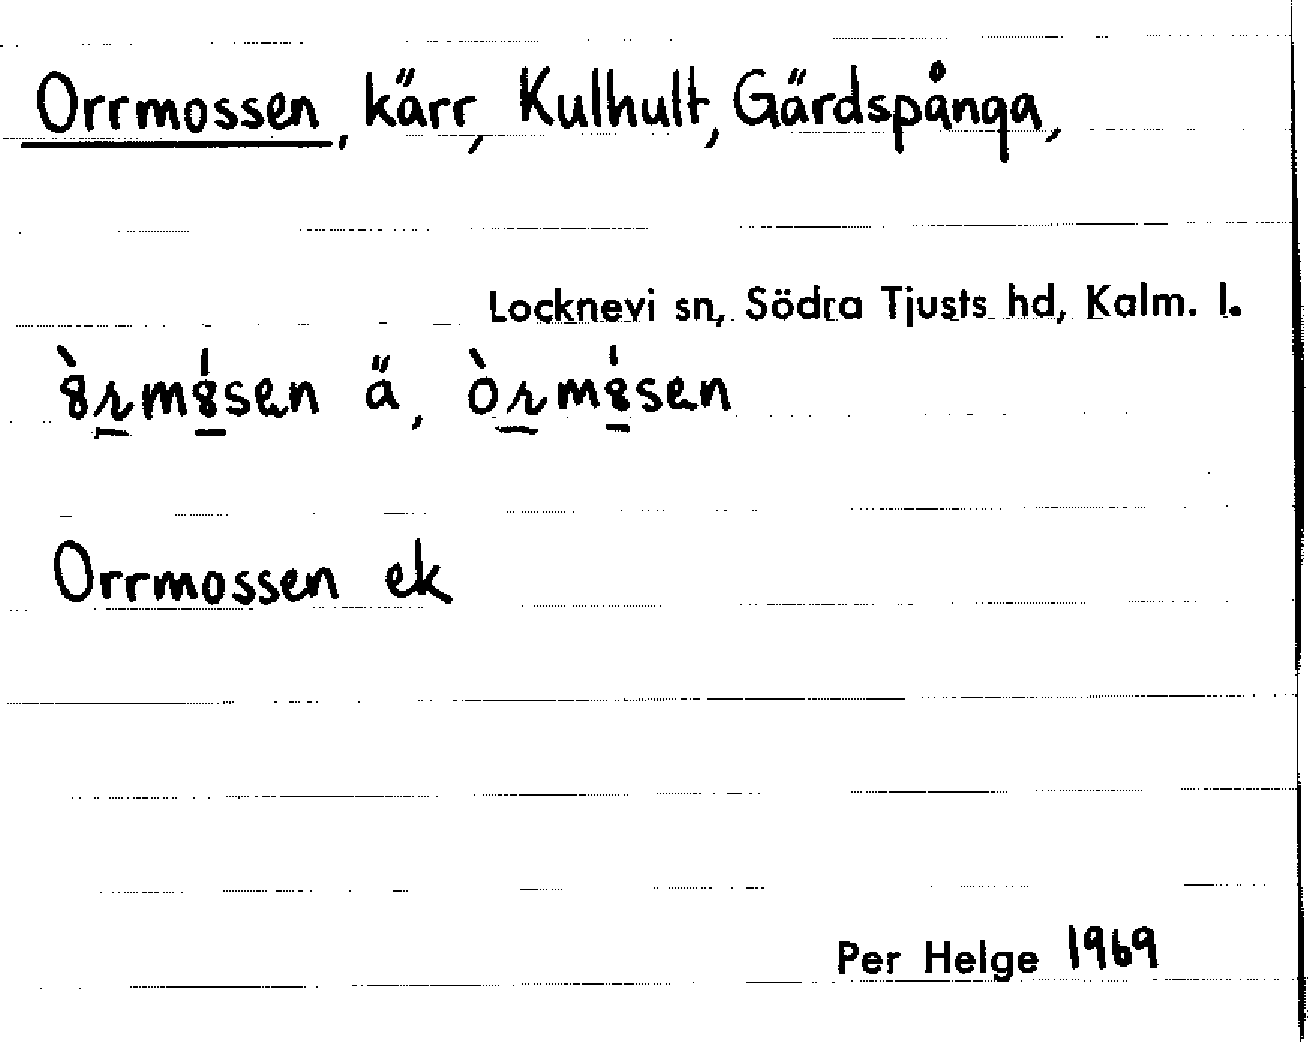 Orrmossen, kärr, Kulhult, Gärdspånga,
Locknevi sn, Södra Tjusts hd, Kalm. l.
ä,
Orrmossen ek
Per Helge 1969